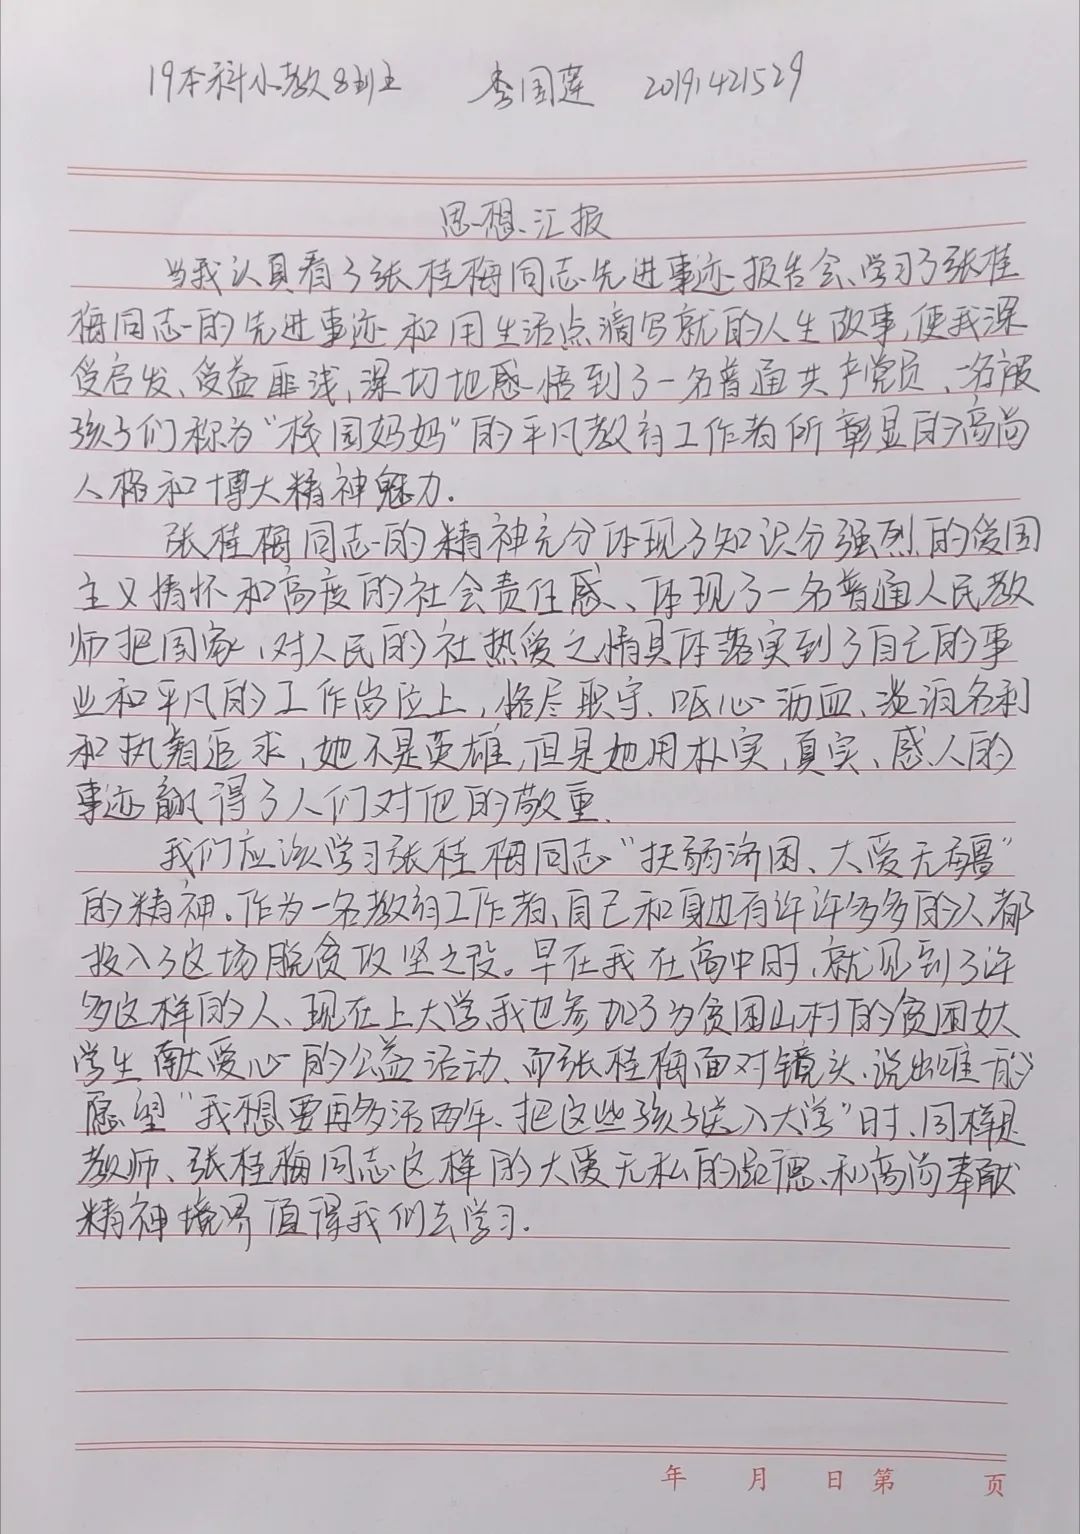 19本科小教8班 李国莲 20191421529
思想汇报
当我认真看了张桂梅同志先进事迹报告会、学习了张桂
梅同志的先进事迹和用生活点滴写就的人生故事,使我深
受启发、受益匪浅,深切地感悟到了一名普通共产党员、一名被
孩子们称为“校园妈妈”的平凡教育工作者所彰显的高尚
人格和博大精神魅力.
张桂梅同志的精神充分体现了知识分强烈的爱国
主义情怀和高度的社会责任感、体现了一名普通人民教
师把国家、对人民的社热爱之情具体落实到了自己的事
业和平凡的工作岗位上,恪尽职守、呕心沥血、淡泊名利
和执着追求,她不是英雄,但是她用朴实,真实、感人的
事迹赢得了人们对他的敬重.
我们应该学习张桂梅同志“扶弱济困、大爱无疆”
的精神。作为一名教育工作者、自己和身边有许许多多的人都
投入了这场脱贫攻坚之役。早在我在高中时,就见到了许
多这样的人、现在上大学,我也参加了为贫困山村的贫困女大
学生献爱心的公益活动、而张桂梅面对镜头、说出唯一的
愿望“我想要再多活两年、把这些孩子送入大学”时、同样是
教师、张桂梅同志这样的大爱无私的品德、和高尚奉献
精神境界值得我们去学习.
年 月 日 第 页